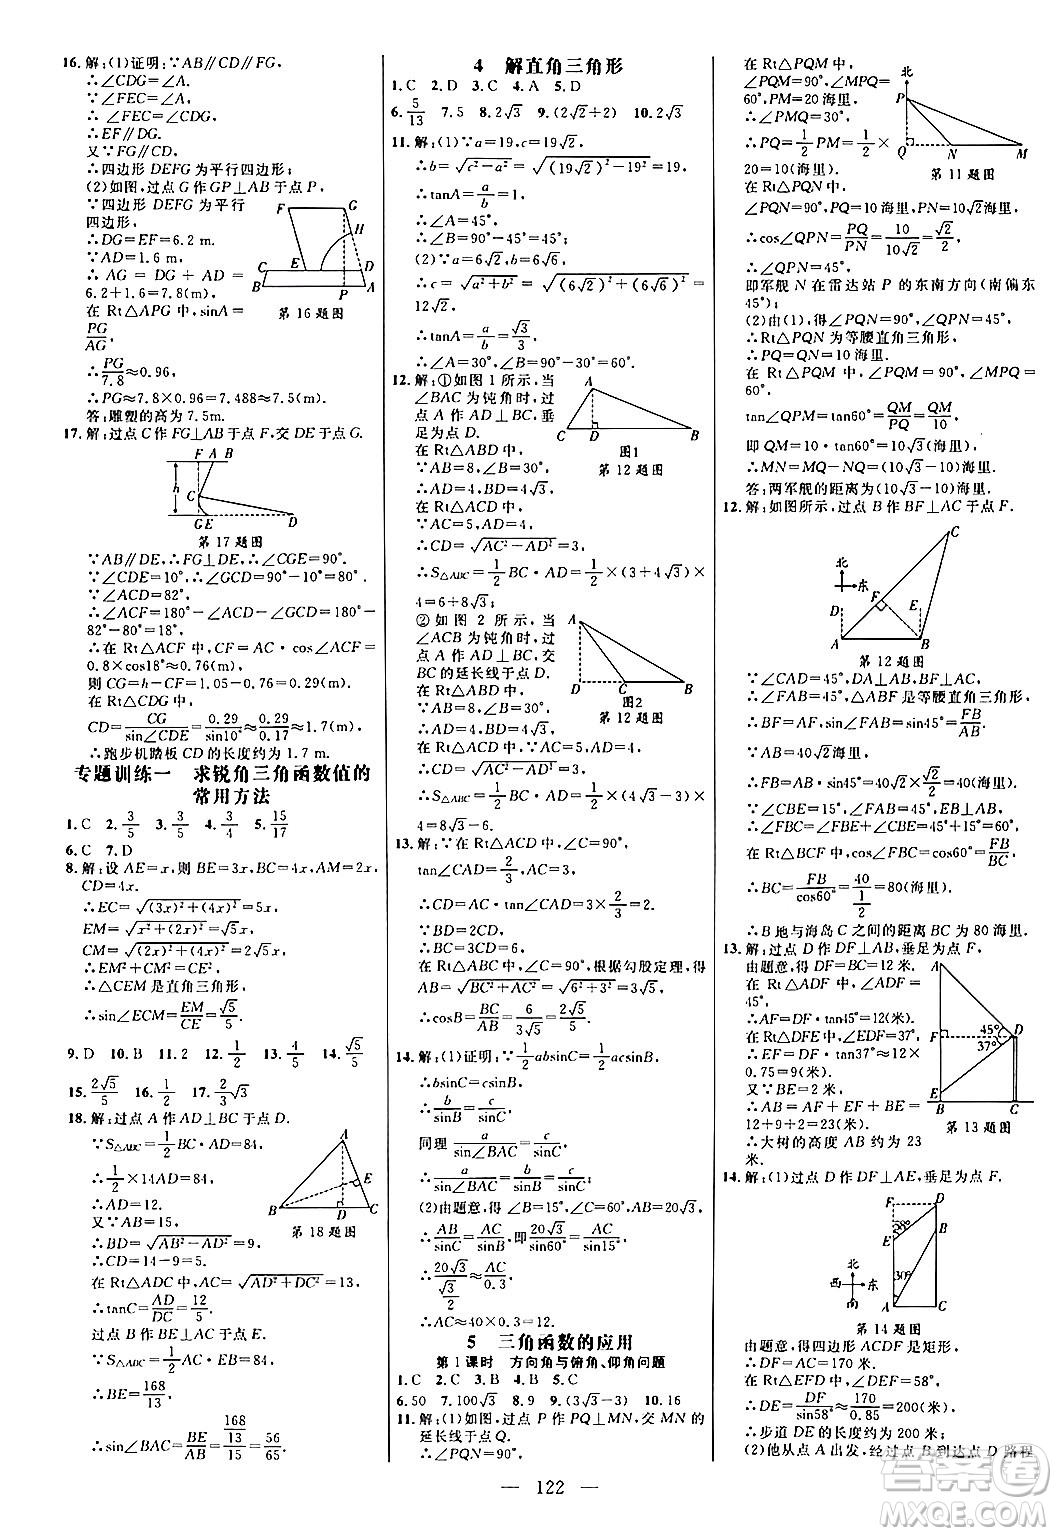 16.解:(1)证明:∵AB∥CD∥FG,
∴∠CDG=∠A.
∵∠FEC=∠A,
∴∠FEC=∠CDG.
∴EF∥DG.
又∵FG∥CD,
∴四边形 DEFG 为平行四边形;
(2)如图,过点 G 作 GP⊥AB 于点 P,
∵四边形 DEFG 为平行
四边形,
∴DG=EF=6.2 m.
∵AD=1.6 m,
∴AG=DG+AD=
6.2+1.6=7.8(m).
在 Rt△APG 中,sinA=
PG/AG,
F G H E D C B P A
第 16 题图
∴PG/7.8≈0.96,
∴PG≈7.8×0.96=7.488≈7.5(m).
答:雕塑的高为 7.5m.
17.解:过点 C 作 FG⊥AB 于点 F,交 DE 于点 G.
F A B h C G E D
第 17 题图
∵AB∥DE,∴FG⊥DE,∴∠CGE=90°.
∵∠CDE=10°,∴∠GCD=80°.
∵∠ACD=82°,
∴∠ACF=180°-∠ACD-∠GCD=180°-
82°-80°=18°.
∴在 Rt△ACF 中,CF=AC·cos∠ACF=
0.8×cos18°≈0.76(m).
则 CG=h-CF=1.05-0.76=0.29(m).
∴在 Rt△CDG 中,
CD=CG/sin∠CDE=0.29/sin10°≈0.29/0.17≈1.7(m).
∴跑步机踏板 CD 的长度约为 1.7 m.
专题训练一 求锐角三角函数值的
常用方法
1.C 2.3/5 3.3/5 4.3/4 5.15/17
6.C 7.D
8.解:设 AE=x,则 BE=3x,BC=4x,AM=2x,
CD=4x.
∴EC=√((3x)²+(4x)²)=5x,
EM=√(x²+(2x)²)=√5x,
CM=√((2x)²+(4x)²)=2√5x,
∴EM²+CM²=CE².
∴△CEM 是直角三角形,
∴sin∠ECM=EM/CE=√5/5.
9.D 10.B 11.2 12.1/2 13.4/5 14.√5/5
15.2√5/5 16.1/2 17.2/3√3
18.解:过点 A 作 AD⊥BC 于点 D.
∵S△ABC=1/2BC·AD=84,
∴1/2×14AD=84,
∴AD=12.
又∵AB=15,
∴BD=√(AB²-AD²)=9,
∴CD=14-9=5.
A E B D C
第 18 题图
在 Rt△ADC 中,AC=√(AD²+DC²)=13,
∴tanC=AD/DC=12/5.
过点 B 作 BE⊥AC 于点 E.
∵S△ABC=1/2AC·BE=84,
∴BE=168/13,
∴sin∠BAC=BE/AB=(168/13)/15=56/65.
4 解直角三角形
1.C 2.D 3.C 4.A 5.D
6.5/13 7.5 8.2√3 9.(2√2+2) 10.2√3
11.解:(1)∵a=19,c=19√2,
∴b=√(c²-a²)=√((19√2)²-19²)=19,
∴tanA=a/b=1,
∴∠A=45°,
∴∠B=90°-45°=45°;
(2)∵a=6√2,b=6√6,
∴c=√(a²+b²)=√((6√2)²+(6√6)²)=
12√2,
∴tanA=a/b=√3/3,
∴∠A=30°,∠B=90°-30°=60°.
12.解:①如图 1 所示,当
∠BAC 为钝角时,过
点 A 作 AD⊥BC,垂
足为点 D.
在 Rt△ABD 中,
∵AB=8,∠B=30°,
∴AD=4,BD=4√3,
A C D B
图1
第 12 题图
在 Rt△ADC 中,
∵AC=5,AD=4,
∴CD=√(AC²-AD²)=3,
∴S△ABC=1/2BC·AD=1/2×(3+4√3)×
4=6+8√3;
②如图 2 所示,当
∠ACB 为钝角时,过
点 A 作 AD⊥BC,交
BC 的延长线于点 D.
在 Rt△ABD 中,
∵AB=8,∠B=30°,
∴AD=4,BD=4√3,
∵AC=5,AD=4,
A D C B
图2
第 12 题图
∴CD=√(AC²-AD²)=3,
∴S△ABC=1/2BC·AD=1/2×(4√3-3)
×4=8√3-6.
13.解:∵在 Rt△ACD 中,
tan∠CAD=2/3,AC=3,
∴CD=AC·tan∠CAD=3×2/3=2,
∴BD=2CD=4,
∴BC=BD+CD=6.
在 Rt△ABC 中,∠C=90°,根据勾股定理,得
AB=√(BC²+AC²)=√(6²+3²)=3√5,
∴cosB=BC/AB=6/3√5=2√5/5.
14.解:(1)证明:∵1/2absinC=1/2acsinB,
∴bsinC=csinB,
∴b/sinB=c/sinC.
同理a/sin∠BAC=b/sinB,
∴a/sin∠BAC=b/sinB=c/sinC;
(2)由题意,得∠B=18°,∠C=60°,AB=20√3,
∴AB/sinC=AC/sinB,即20√3/sin60°=AC/sin18°,
∴20√3/(√3/2)≈AC/0.3,
∴AC≈40×0.3=12.
5 三角函数的应用
第 1 课时 方向角与俯角、仰角问题
1.C 2.C 3.B 4.B 5.C
6.50 7.100√3 8.9 9.(3√3-3) 10.16
11.解:(1)如图,过点 P 作 PQ⊥MN,交 MN 的
延长线于点 Q.
∴∠PQN=90°,
在 Rt△PQM 中,
∠PQM=90°,∠MPQ=
60°,PM=20 海里,
∴∠PMQ=30°,
∴PQ=1/2PM=1/2×
20=10(海里),
北 P Q N M
第 11 题图
在 Rt△PQN 中,
∠PQN=90°,PQ=10 海里,PN=10√2 海里,
∴cos∠QPN=PQ/PN=10/10√2=√2/2,
∴∠QPN=45°,
即军舰 N 在雷达站 P 的东南方向(南偏东
45°);
(2)由(1),得∠PQN=90°,∠QPN=45°,
∴Rt△PQN 为等腰直角三角形,
∴PQ=QN=10 海里.
在 Rt△PQM 中,∠PQM=90°,∠QPM=
60°,
tan∠QPM=QM/PQ=QM/10=√3,
即 QM=10·tan60°=10√3(海里),
∴MN=MQ-NQ=(10√3-10)海里.
答:两军舰的距离为(10√3-10)海里.
12.解:如图所示,过点 B 作 BF⊥AC 于点 F.
C 北 东 F D E A B
第 12 题图
∵∠CAD=45°,DA⊥AB,
∴∠FAB=45°,△ABF 是等腰直角三角形,
∴BF=AF,sin∠FAB=sin45°=FB/AB.
∵AB=40√2海里,
∴FB=AB·sin45°=40√2×√2/2=40(海里),
∵∠CBE=15°,∠FAB=45°,EB⊥AB,
∴∠FBC=∠FBE+∠CBE=45°+15°=60°.
在 Rt△BCF 中,cos∠FBC=cos60°=FB/BC,
∴BC=FB/cos60°=40/(1/2)=80(海里),
∴B 地与海岛 C 之间的距离 BC 为 80 海里.
13.解:过点 D 作 DF⊥AB,垂足为点 F,
由题意,得 DF=BC=12 米.
在 Rt△ADF 中,∠ADF=
45°,
∴AF=DF·tan45°=12(米).
在 Rt△EDF 中,∠EDF=37°,
∴EF=DF·tan37°≈12×
0.75=9(米).
又∵BE=2 米,
∴AB=AF+EF+BE=
12+9+2=23(米),
∴大树的高度 AB 约为 23
米.
A F 45° 37° D E B C
第 13 题图
14.解:(1)过点 D 作 DF⊥AE,垂足为点 F.
F D 58° B E 30° 北 西 东 南 A C
第 14 题图
由题意,得四边形 ACDF 是矩形,
∴DF=AC=170 米.
在 Rt△EFD 中,∠DEF=58°,
∴DE=DF/sin58°≈170/0.85=200(米),
∴步道 DE 的长度约为 200 米;
(2)他从点 A 出发,经过点 B 到达点 D 路程
— 122 —
答案圈
MXQE.COM